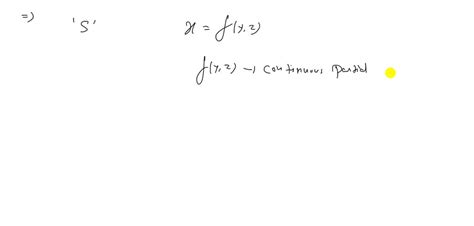 =) 'S' x = f(y,z)
f(y,z) → continuous partial